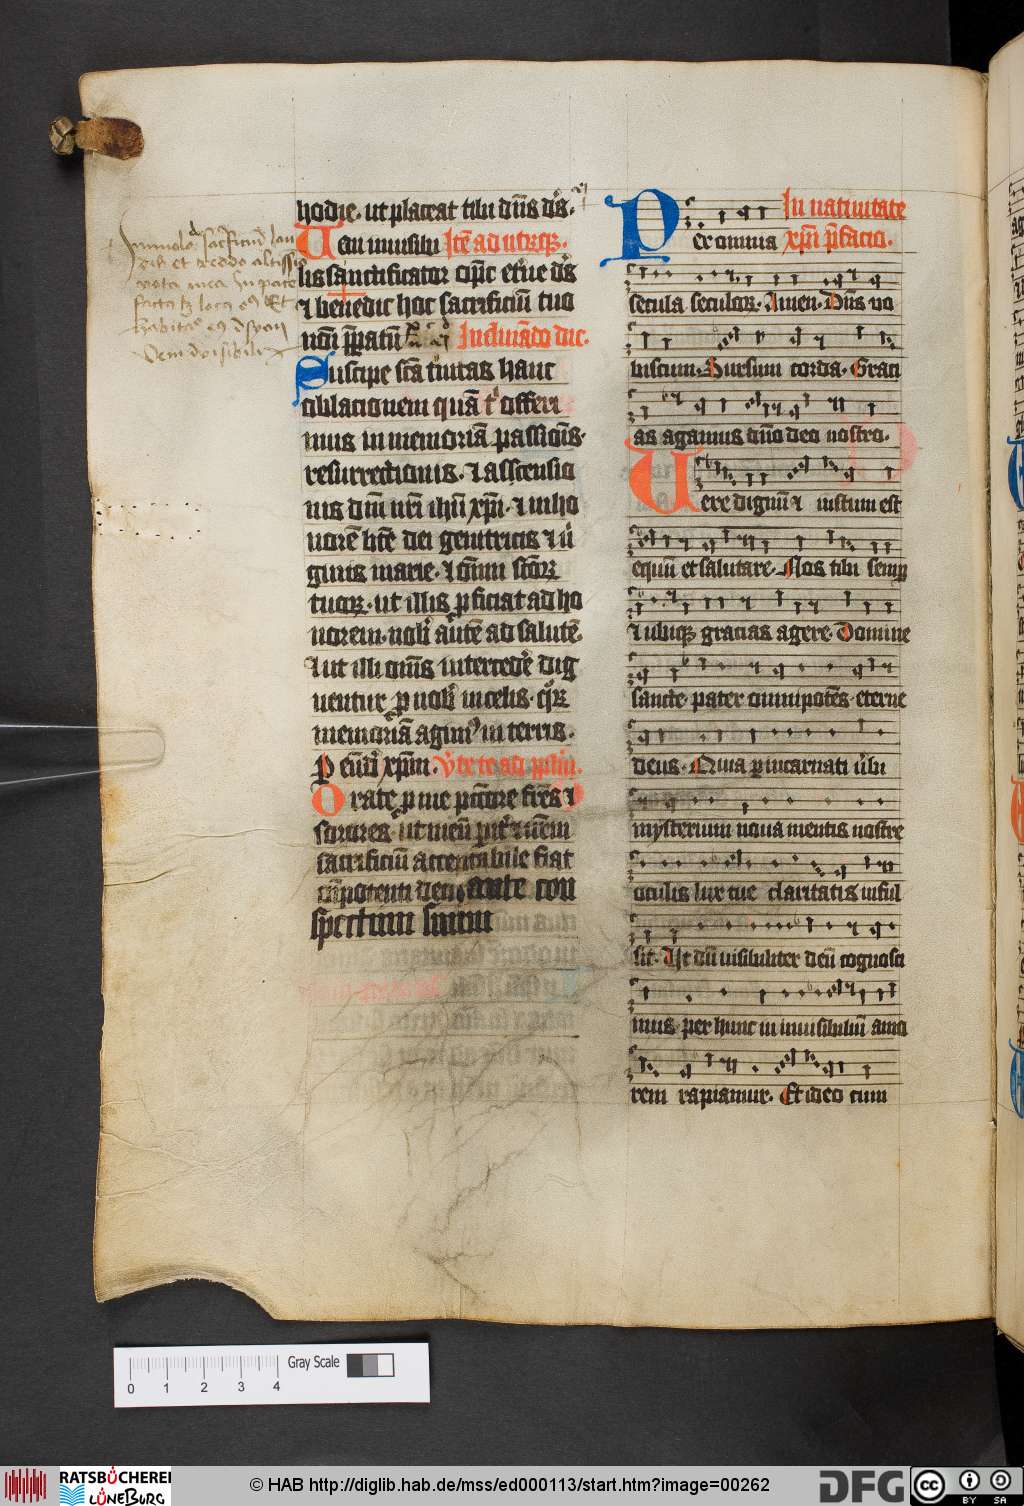 hodie. ut placeat tibi dn̄s ds̄.
Ueni inuisibi Itē ad utrūq̄.
lis sanctificator op̄c et̄ne ds̄
⁊ benedic hoc sacrificiū tuo
noī p̄paratū Inclinādo dic.
Suscipe sc̄a t̄nitas hanc
oblacionem quā tͥ offeri
mus in memoriā passiōis.
resurrectionis. ⁊ asscensio
nis dn̄i nr̄i ih̄u xp̄i. ⁊ in ho
norē bt̄e dei genitricis ⁊ ū
ginis marie. ⁊ oīm sc̄oꝝ
tuoꝝ. ut illis ꝓficiat ad ho
norem. nobͥ autē ad salutē.
⁊ ut illi om̄s intercedē dig
nentur ꝓ nobͥ in celis. qͦꝝ
memoriā agimꝰ in terris.
P eūdē xp̄m. v̄te te ad pp̄lm.
Orate ꝓ me pctōre fr̄es ⁊
sorores. ut meū parit̄ ⁊ ur̄m
sacrificiū acceptabile fiat
oīpotenti deo. ante con
spectum suum
In natiuitate
Per omnia xp̄i p̄facio.
secula seculoꝝ. Amen. Dn̄s uo
biscum. Sursum corda. Graci
as agamus dn̄o deo nostro.
Uere dignū ⁊ iustum est
equū et salutare. Nos tibi semp̄
⁊ ubiqꝫ gracias agere. Domine
sancte. pater omnipotēs. eterne
deus. Quia ꝑ incarnati ūbi
mysterium noua mentis nostre
oculis lux tue claritatis inful
sit. Ut dū uisibiliter deū cognosci
mus. per hunc in inuisibiliū amo
rem rapiamur. Et ideo cum
Gray Scale
0 1 2 3 4
RATSBÜCHEREI
LÜNEBURG
© HAB http://diglib.hab.de/mss/ed000113/start.htm?image=00262
DFG
cc
BY SA